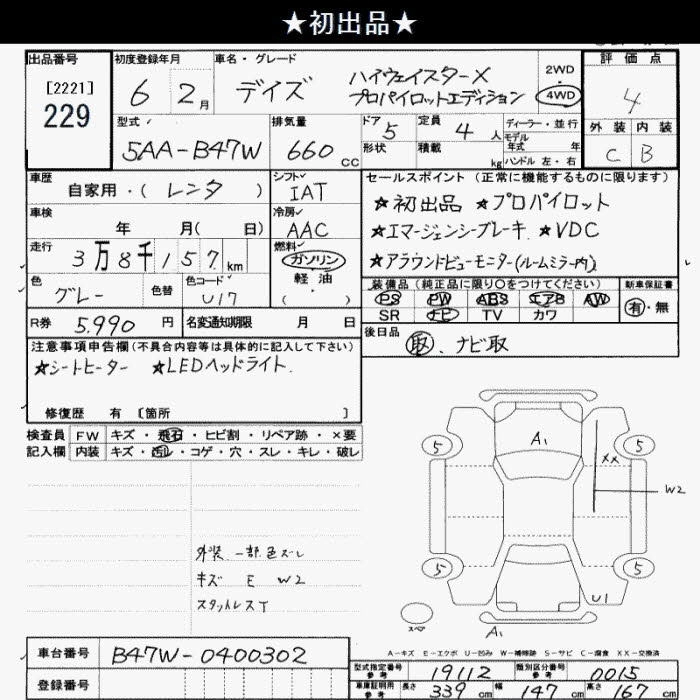 ★初出品★
出品番号
[2221]
229
初度登録年月
6 2月
車名・グレード
デイズ ハイウェイスターX
プロパイロットエディション
2WD
4WD
評価点
4
外装 内装
C B
型式
5AA-B47W
排気量
660 cc
ドア 5
形状
定員 4 人
積載 kg
ディーラー・並行
モデル
年式 年
ハンドル 左・右
車歴
自家用・(レンタ)
シフト
IAT
車検
年 月( 日)
冷房
AAC
走行
3万8千157km
燃料
ガソリン
軽油
( )
色
グレー
色替
色コード
U17
R券 5.990 円
名変通知期限 月 日
セールスポイント (正常に機能するものに限ります)
★初出品 ★プロパイロット
★エマージェンシーブレーキ ★VDC
★アラウンドビューモニター(ルームミラー内)
装備品 (純正品に限り○をつけてください)
PS PW ABS エアB AW
SR ナビ TV カワ
新車保証書
有・無
後日品
取、ナビ取
注意事項申告欄(不具合内容等は具体的に記入して下さい)
★シートヒーター ★LEDヘッドライト.
修復歴 有 [箇所 ]
検査員
記入欄
FW キズ・飛石・ヒビ割・リペア跡・×要
内装 キズ・汚レ・コゲ・穴・スレ・キレ・破レ
外装 一部色ズレ
キズ E W2
スタットレスT
A1
5
5
XX
W2
5
5
U1
スペア
A1
A-キズ E-エクボ U-凹み W-補修跡 S-サビ C-腐食 XX-交換済
車台番号 B47W-0400302
登録番号
型式指定番号
参考
19112
類別区分番号
参考
0015
車庫証明用
参考
長さ 339 cm 幅 147 cm 高さ 167 cm